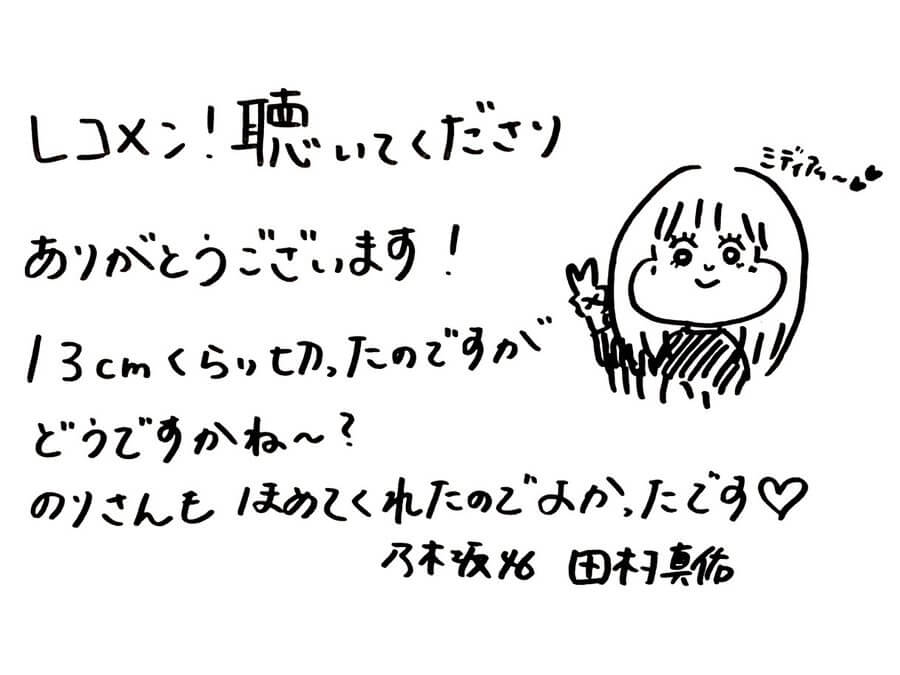 レコメン！聴いてくださり
ミディアム〜
ありがとうございます！
13cmくらい切ったのですが
どうですかね〜？
のりさんも ほめてくれたのでよかったです♡
乃木坂46 田村真佑